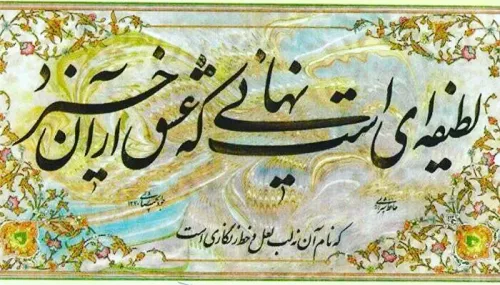 لطیفه‌ای است نهانی که عشق از آن خیزد
که نام آن نه لب لعل و خط زنگاری است